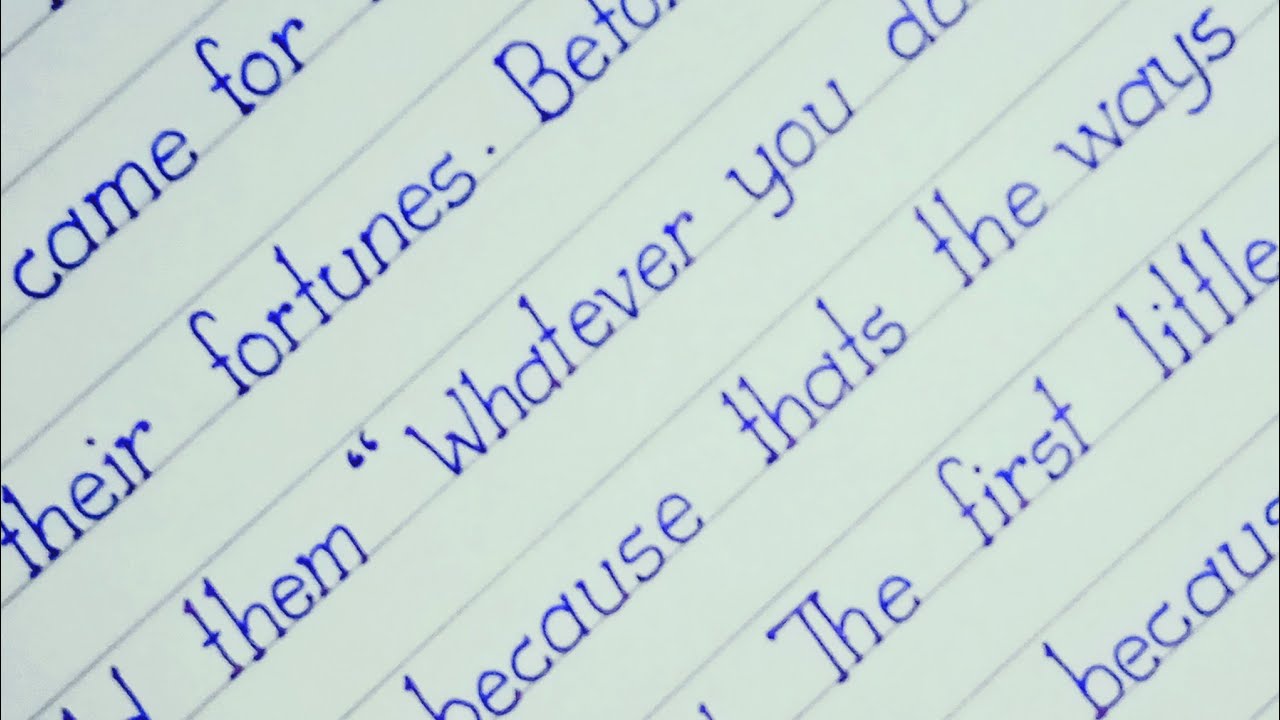 came for
their fortunes. Befo
them “Whatever you do
because thats the ways
The first little
becaus